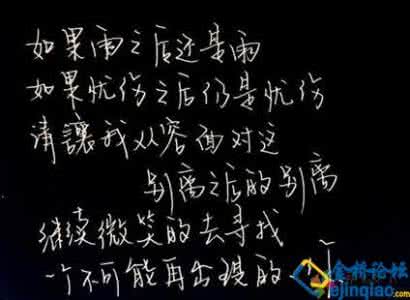 如果雨之后还是雨
如果忧伤之后仍是忧伤
请讓我从容面对这
别离之后的别离
继续微笑的去寻找
一个不可能再出现的
金桥论坛
ejinqiao.com